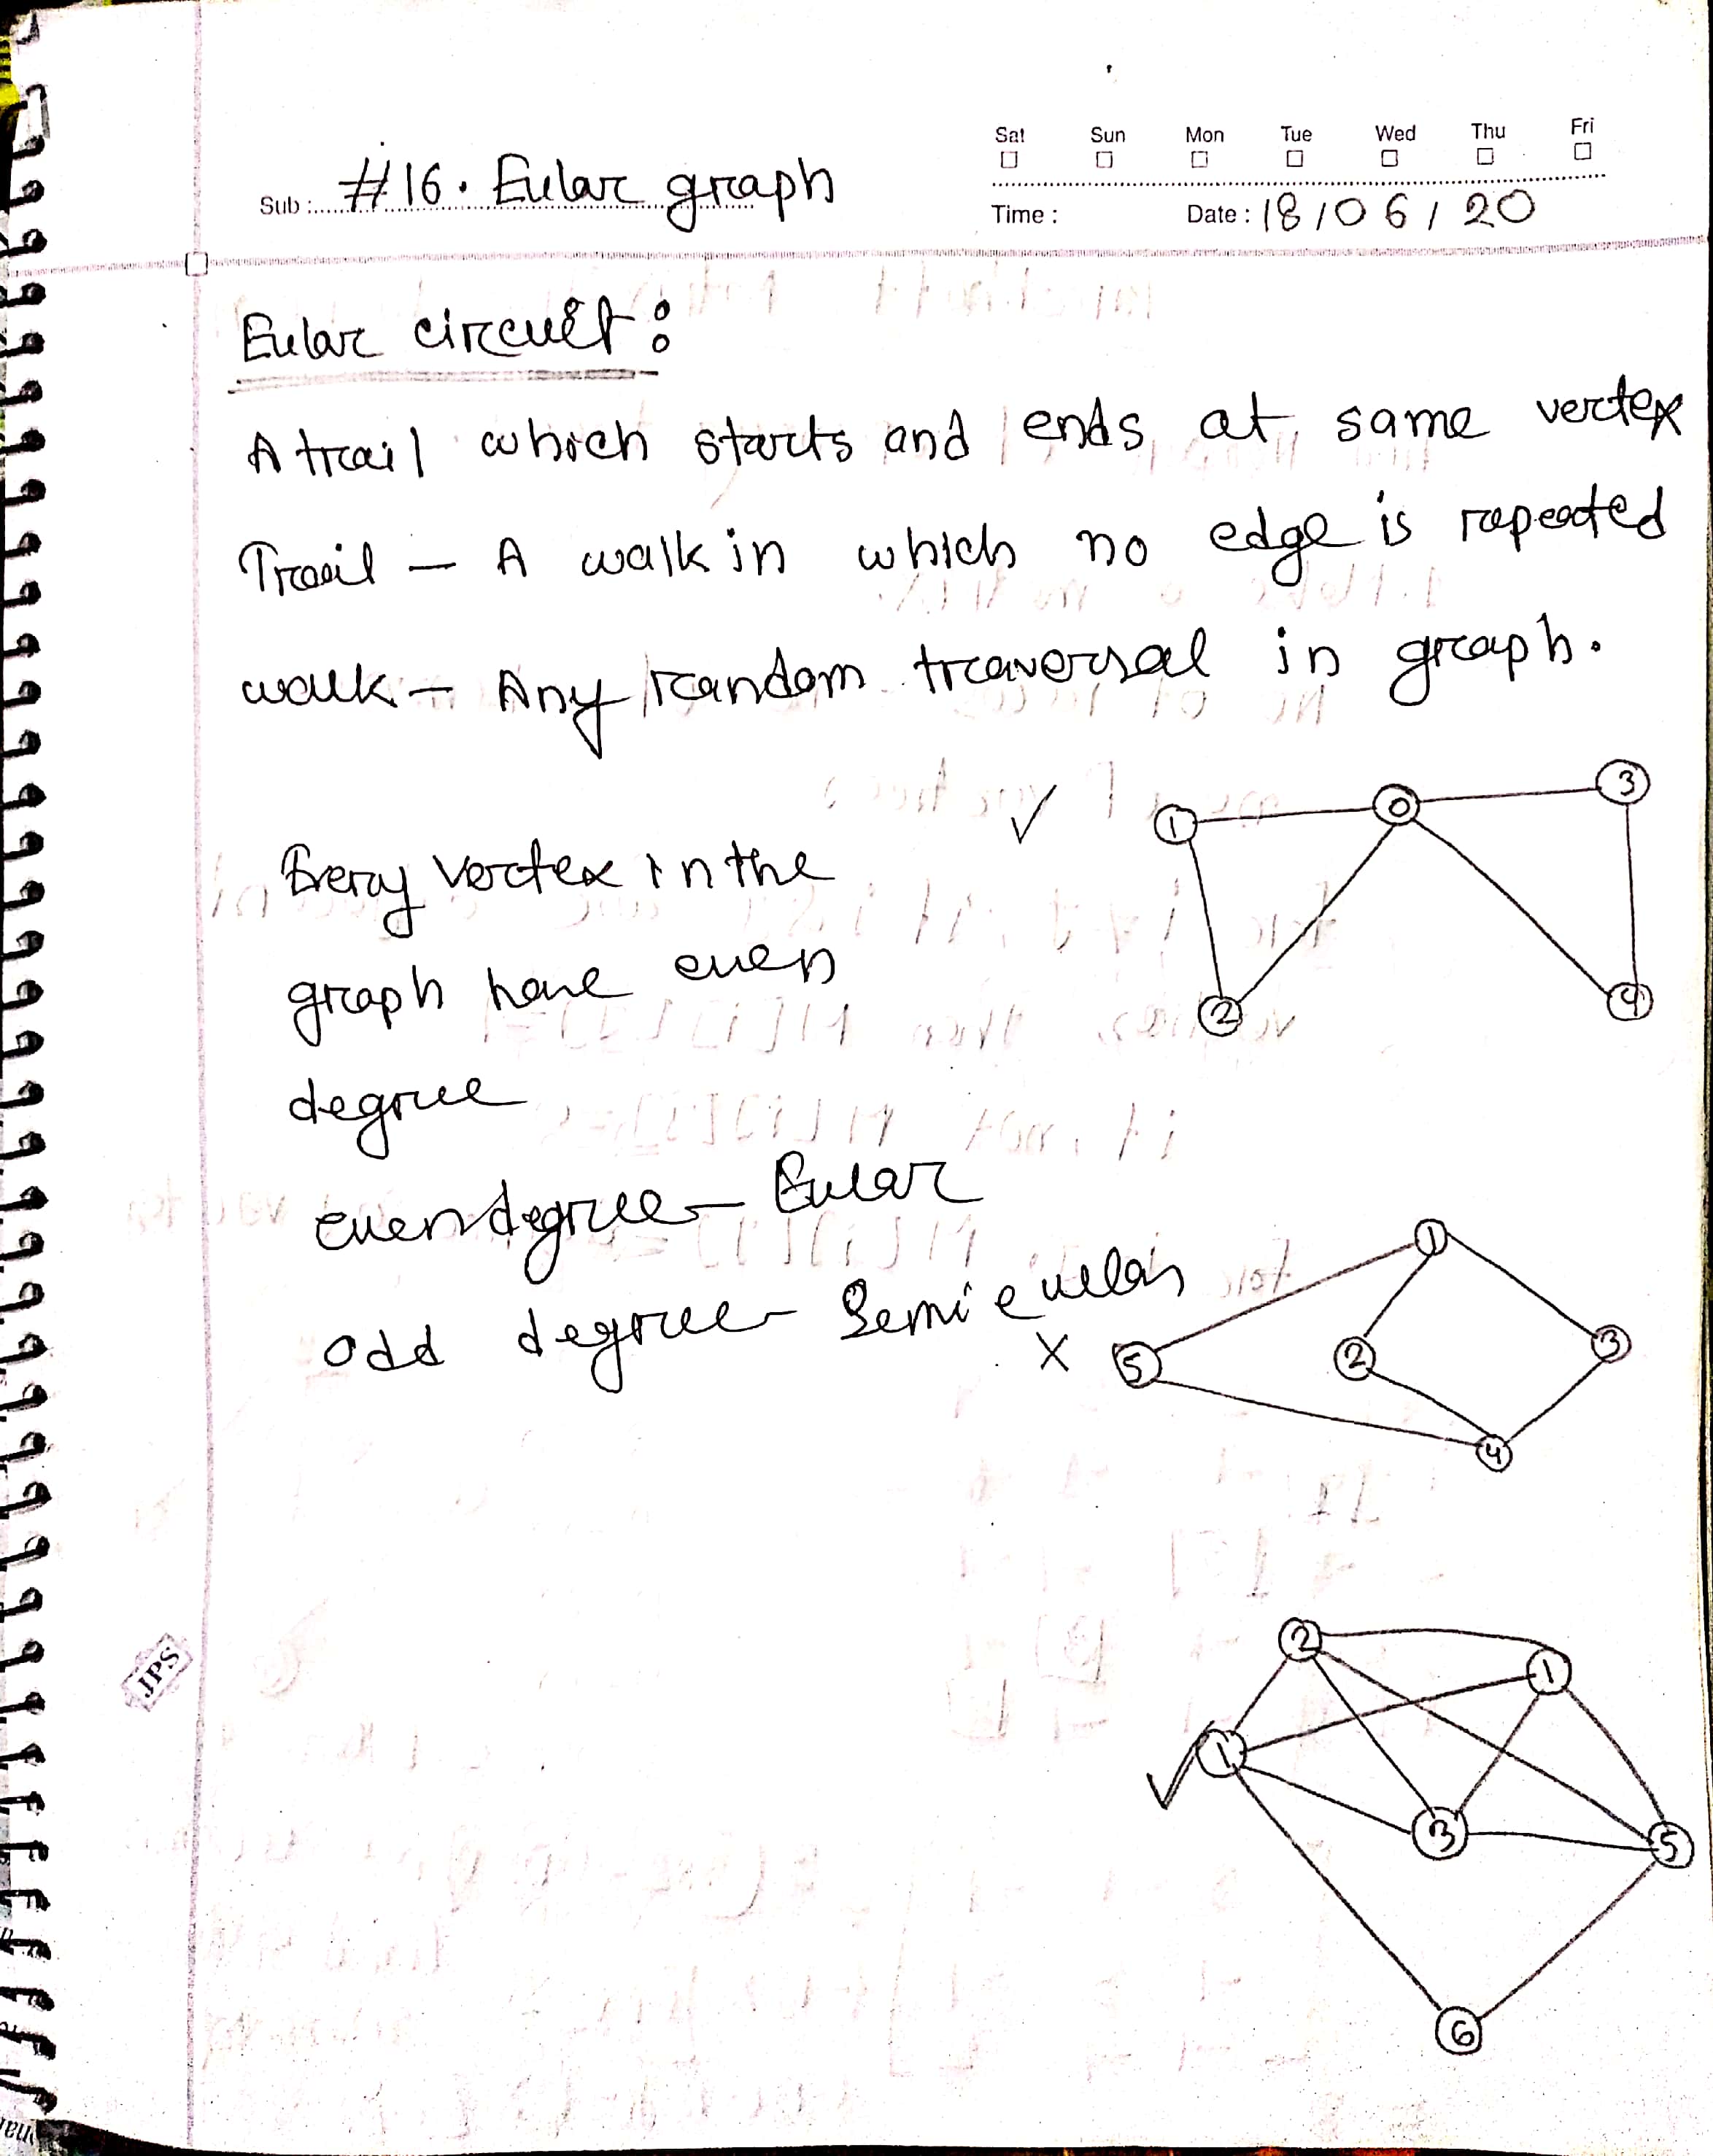 Sat Sun Mon Tue Wed Thu Fri
Sub : #16. Eular graph
Time : Date : 18/06/20
Eular circuit:
A trail which starts and ends at same vertex
Trail – A walk in which no edge is repeated
walk – Any random traversal in graph.
Every vertex in the
graph have even
degree
even degree – Eular
odd degree – Semi eular
✓ 1 0 3
2 4
X 5 1 2 3 4
2 1
✓ 1 3 5
6
JPS